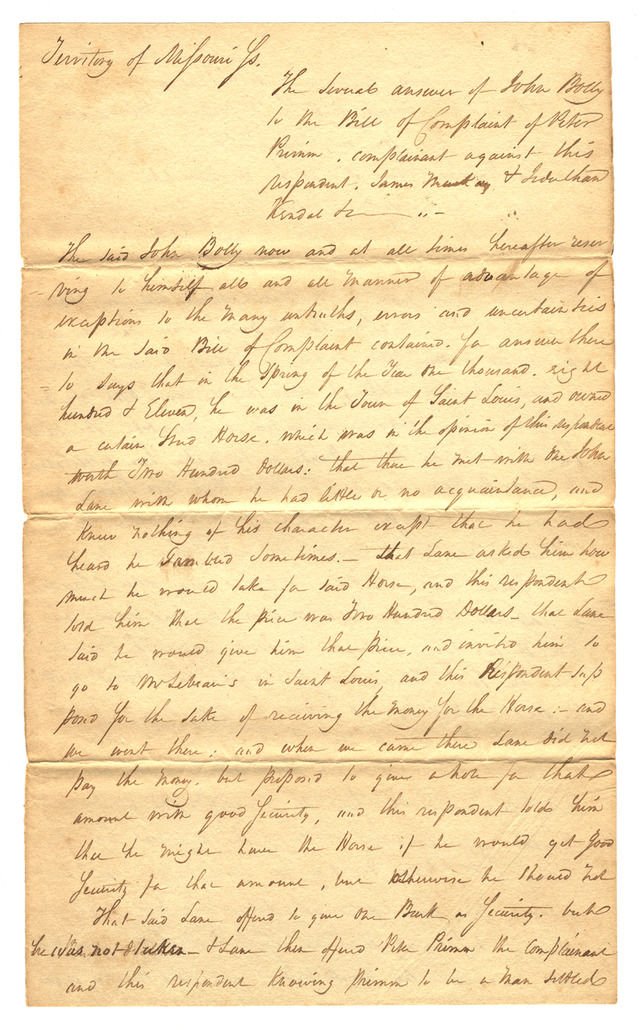 Territory of Missouri Ss.
The several answer of John Bolly
to the Bill of Complaint of Peter
Primm, complainant against this
respondent, James Mackay & Jonathan
Kendal
The said John Bolly now and at all times hereafter reser
ving to himself all and all manner of advantage of
exceptions to the many untruths, errors and uncertainties
in the said Bill of Complaint contained. for answer there
to says that in the Spring of the Year One thousand eight
hundred & Eleven, he was in the Town of Saint Louis, and owned
a certain Stud Horse, which was in the opinion of this respondent
worth Two Hundred Dollars: that there he met with one John
Lane with whom he had little or no acquaintance, and
Knew nothing of his character except that he had
heard he Gambled Sometimes.— that Lane asked him how
much he would take for said Horse, and this respondent
told him that the price was Two Hundred Dollars— that Lane
said he would give him that price, and invited him to
go to in Saint Louis, and this Respondent sup
posed for the sake of receiving the money for the Horse:— and
we went there: and when we came there Lane did not
pay the money. but proposed to give a note for that
amount with good Security, and this respondent told him
that he might have the Horse if he would get good
Security for that amount, but otherwise he should not
That said Lane offered to give one Burk as Security. but
he was not taken— & Lane then offered Peter Primm the complainant
and this respondent Knowing Primm to be a man settled